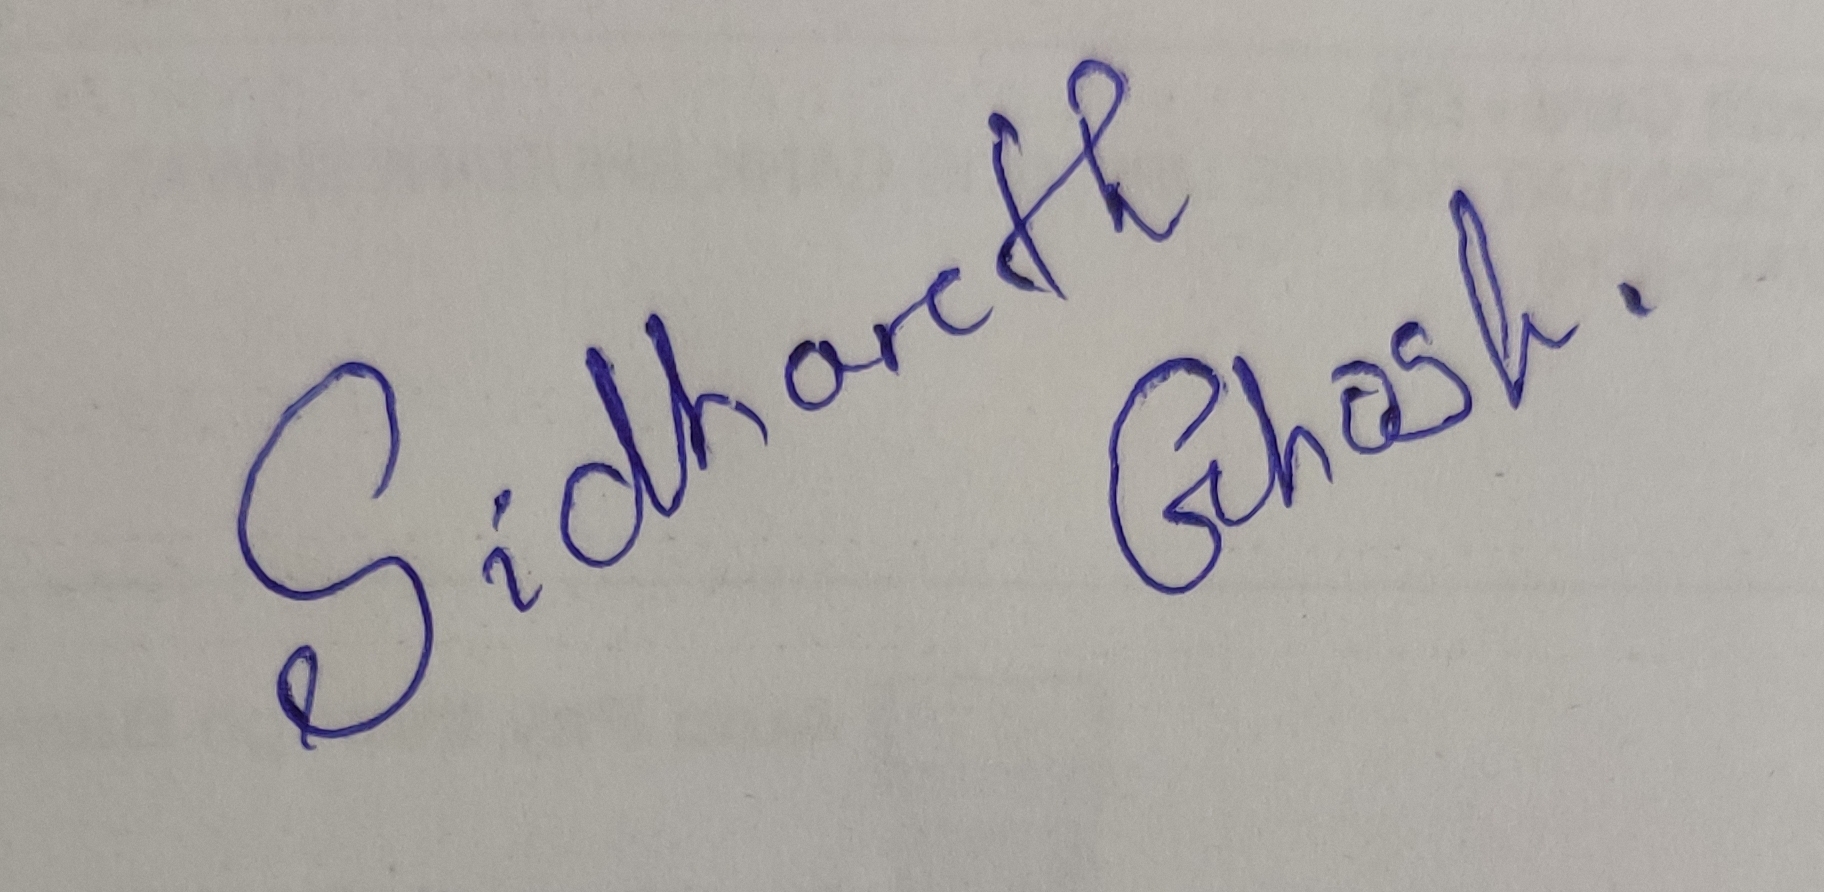 Sidharth
Ghosh.